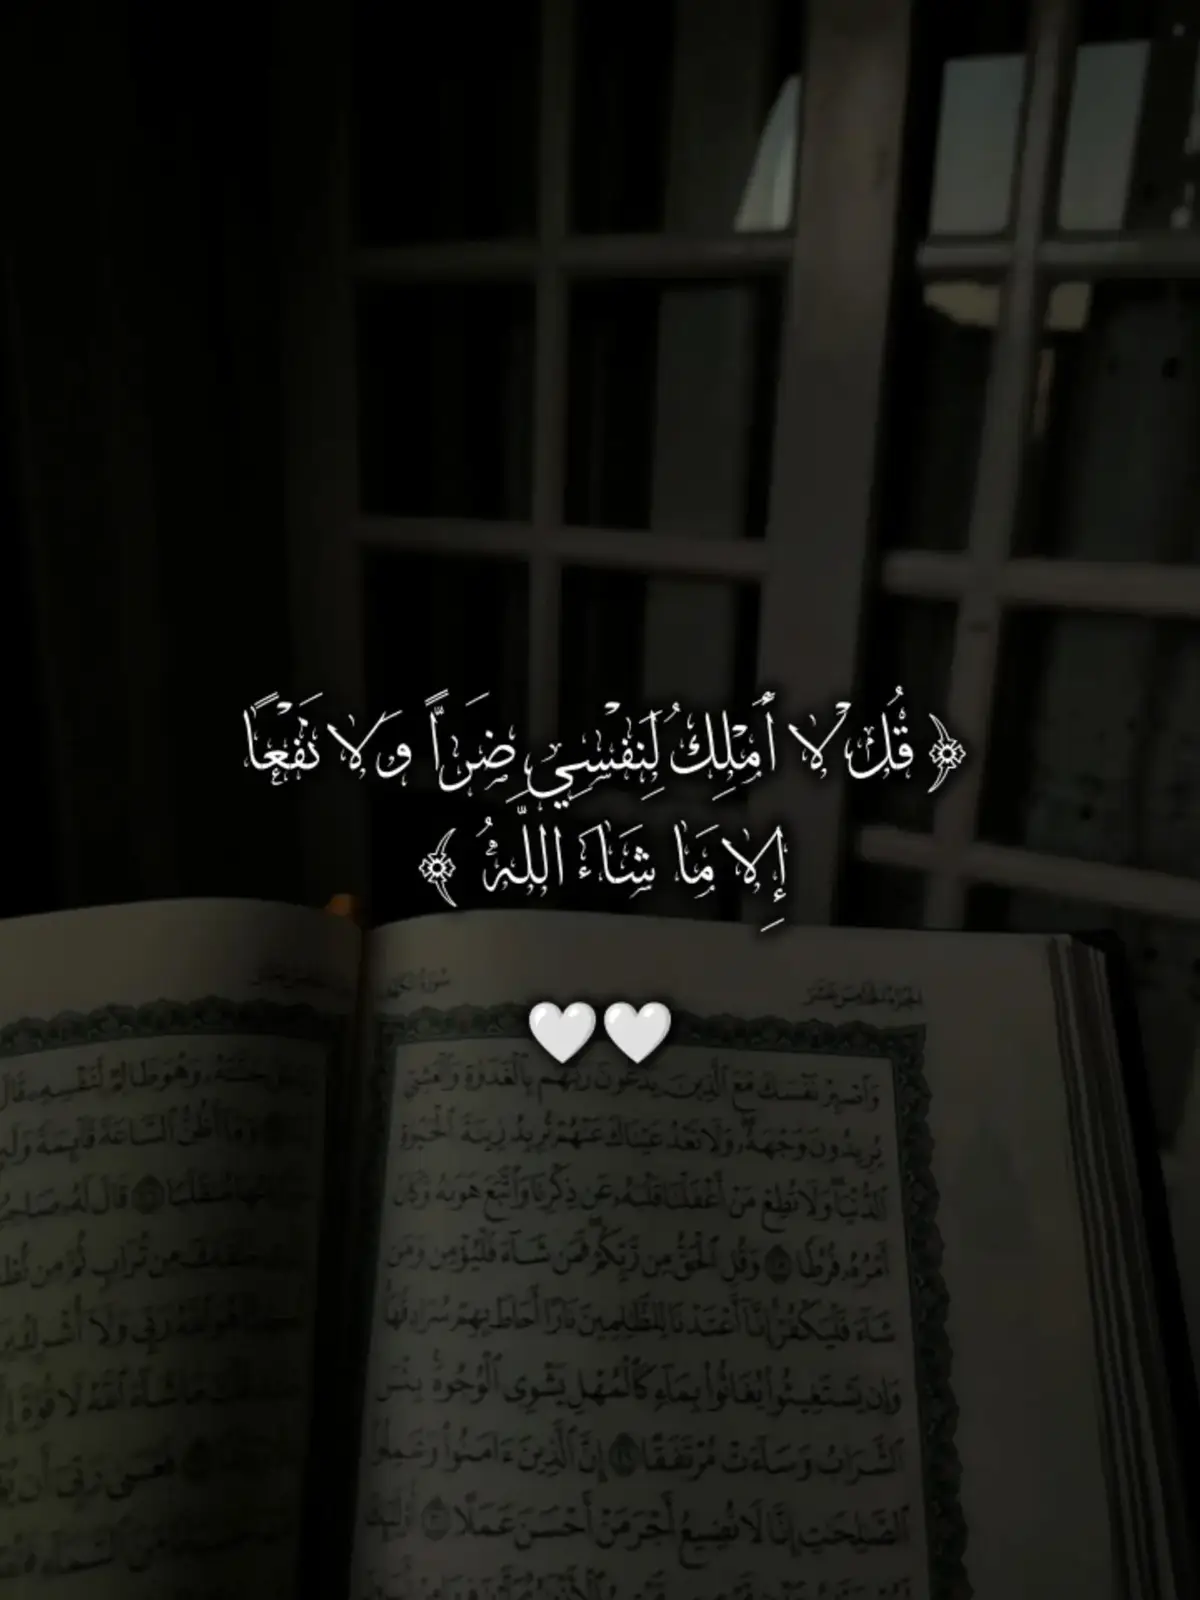 ﴿ قُلْ لَا أَمْلِكُ لِنَفْسِي ضَرًّا وَلَا نَفْعًا
إِلَّا مَا شَاءَ اللَّهُ ﴾
🤍🤍
سُورَةُ الكَهْف
الجُزْءُ الخَامِسَ عَشَرَ
وَٱصۡبِرۡ نَفۡسَكَ مَعَ ٱلَّذِينَ يَدۡعُونَ رَبَّهُم بِٱلۡغَدَوٰةِ وَٱلۡعَشِيِّ
يُرِيدُونَ وَجۡهَهُۥۖ وَلَا تَعۡدُ عَيۡنَاكَ عَنۡهُمۡ تُرِيدُ زِينَةَ ٱلۡحَيَوٰةِ
ٱلدُّنۡيَاۖ وَلَا تُطِعۡ مَنۡ أَغۡفَلۡنَا قَلۡبَهُۥ عَن ذِكۡرِنَا وَٱتَّبَعَ هَوَىٰهُ وَكَانَ
أَمۡرُهُۥ فُرُطٗا ۝٢٨ وَقُلِ ٱلۡحَقُّ مِن رَّبِّكُمۡۖ فَمَن شَآءَ فَلۡيُؤۡمِن وَمَن
شَآءَ فَلۡيَكۡفُرۡۚ إِنَّآ أَعۡتَدۡنَا لِلظَّٰلِمِينَ نَارًا أَحَاطَ بِهِمۡ سُرَادِقُهَاۚ
وَإِن يَسۡتَغِيثُواْ يُغَاثُواْ بِمَآءٖ كَٱلۡمُهۡلِ يَشۡوِي ٱلۡوُجُوهَۚ بِئۡسَ
ٱلشَّرَابُ وَسَآءَتۡ مُرۡتَفَقًا ۝٢٩ إِنَّ ٱلَّذِينَ ءَامَنُواْ وَعَمِلُواْ
ٱلصَّٰلِحَٰتِ إِنَّا لَا نُضِيعُ أَجۡرَ مَنۡ أَحۡسَنَ عَمَلًا ۝٣٠ أُوْلَٰٓئِكَ
جَنَّتَهُۥ وَهُوَ ظَالِمٞ لِّنَفۡسِهِۦ قَالَ
وَمَآ أَظُنُّ ٱلسَّاعَةَ قَآئِمَةٗ
مُنقَلَبٗا ۝٣٦ قَالَ لَهُۥ
مِن تُرَابٖ ثُمَّ مِن
رَبِّي وَلَآ أُشۡرِكُ
مَا شَآءَ ٱللَّهُ لَا قُوَّةَ
فَعَسَىٰ رَبِّيٓ أَن